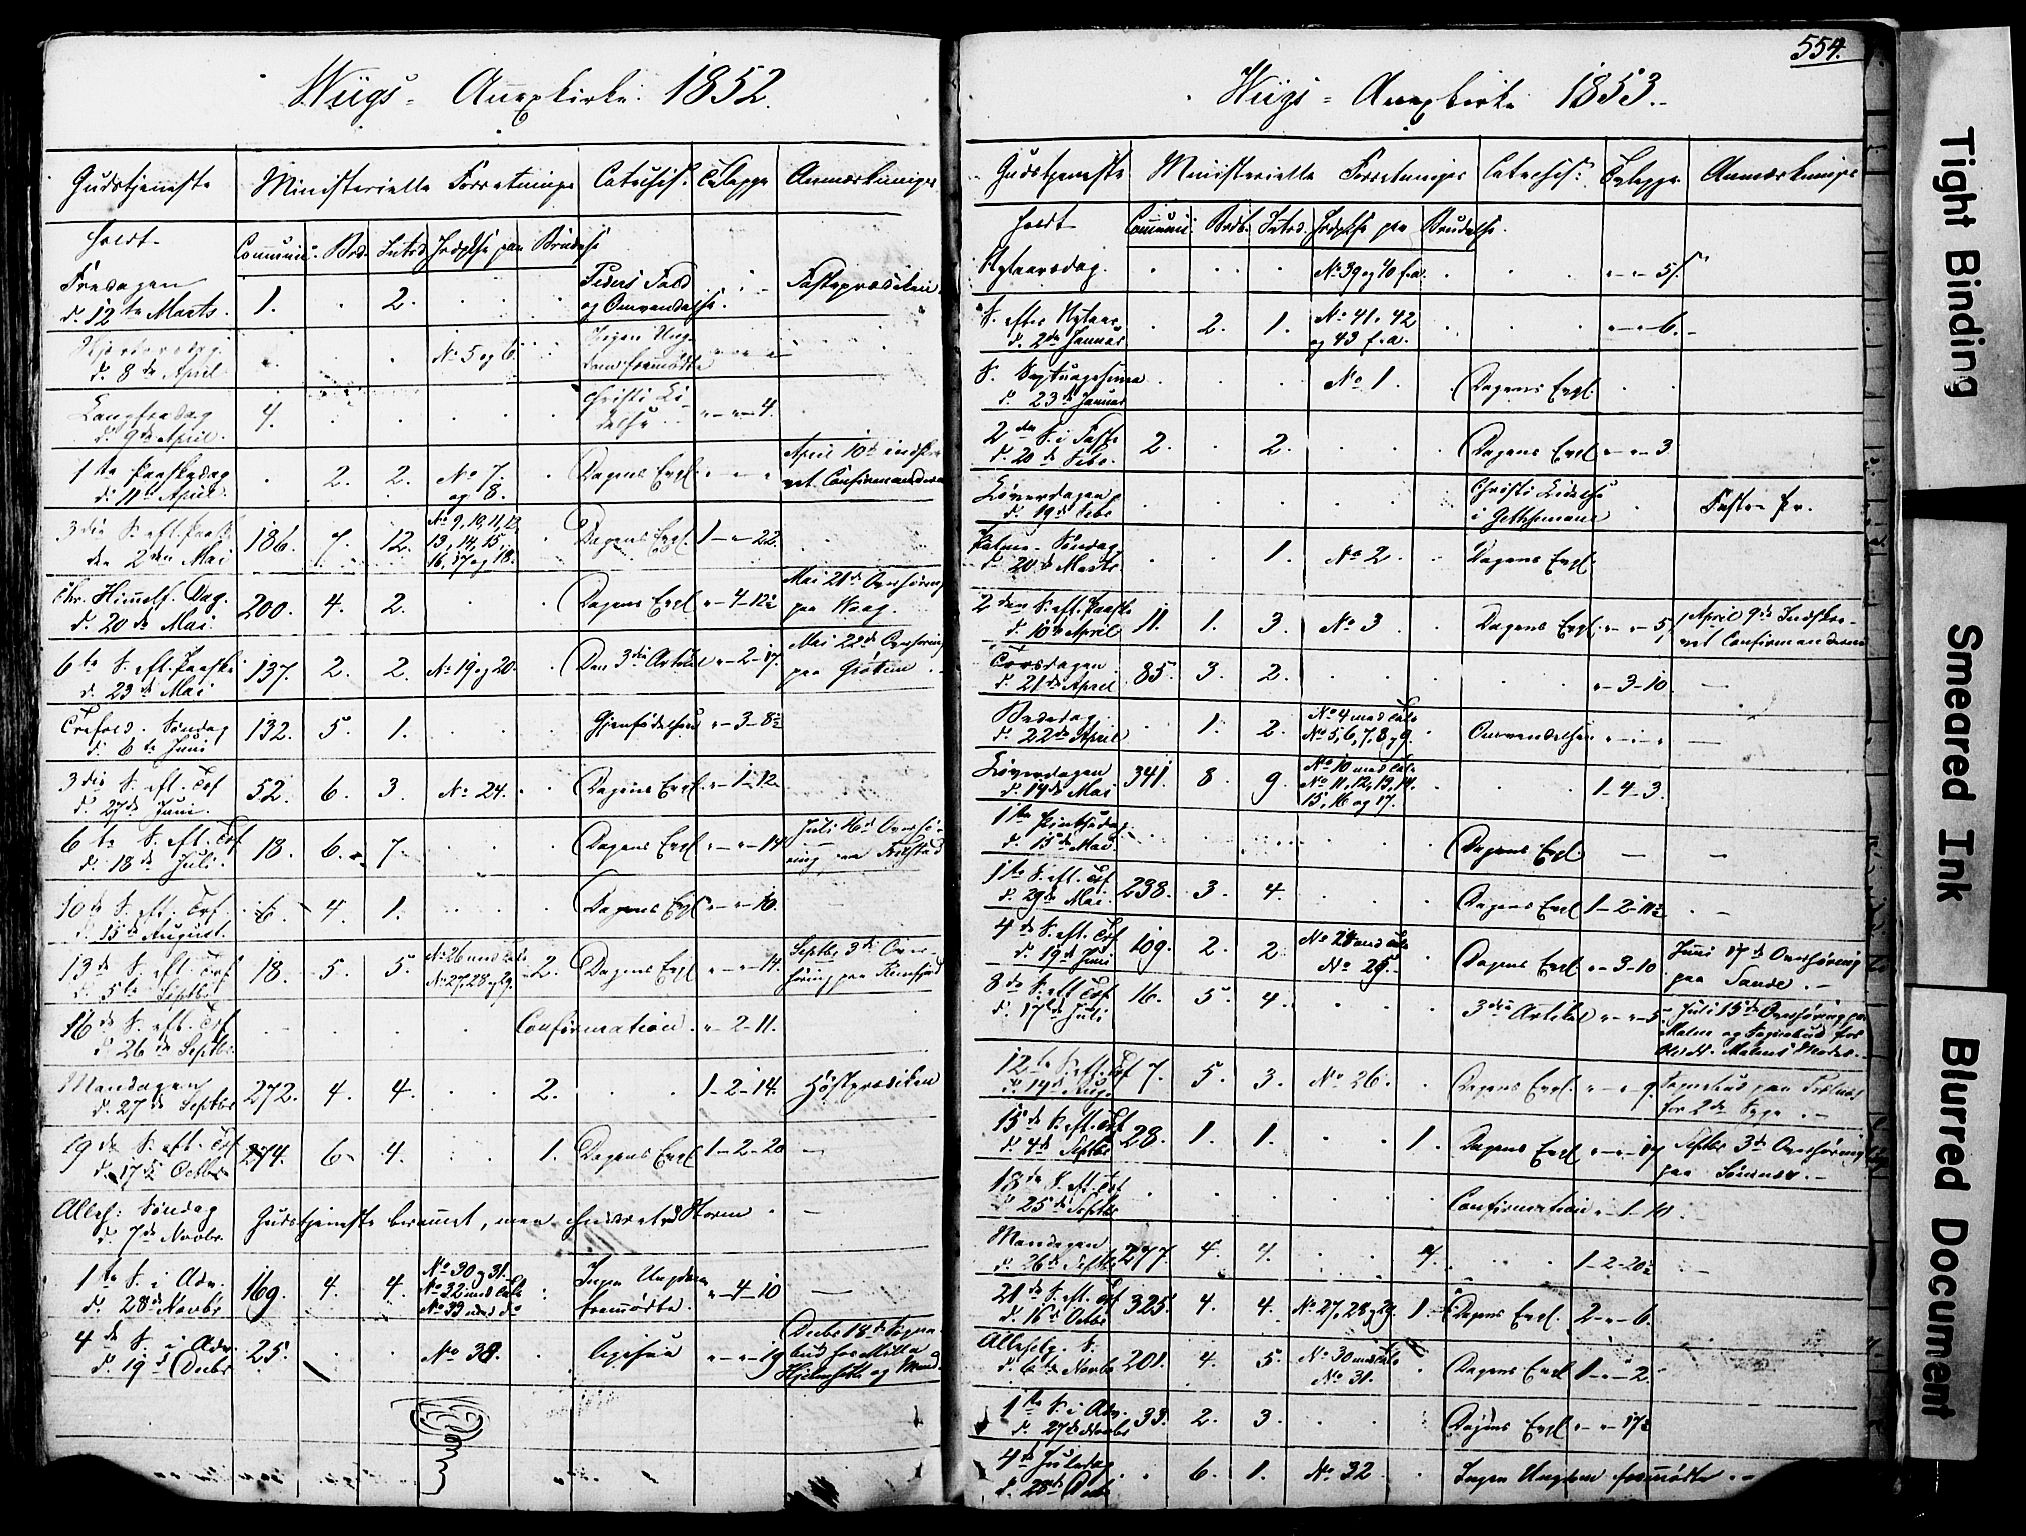 Wiigs - Anexkirke 1852.
Gudstjeneste Ministerielle Forretninger Catechis: Calappe Anmærkninger
holdt Communi. Brd. Introd. Jordpkse paa Brudelse
Fredagen d. 12te Marts. 1. . 2. . . Peders Fald og Omvendelse. Fasteprædiken
d. 8de April . . . No 5 og 6. Ingen Ungdom fremmødte
Langfredag d. 9de April. 4. . . . . Christi Lidelse " - " - 4.
1te Paaskedag d. 11te April. . 2. 2. No 7 og 8. . Dagens Evgl. April 10de indskrevet Confirmanderne
3die S. eft. Paaske den 2den Mai 186. 7. 12. No 9, 10, 11, 12, 13, 14, 15, 16, 17 og 18. . Dagens Evgl. 1 - " - 22.
Chr. Himelf. Dag. d. 20de Mai. 200. 4. 2. . . Dagens Evgl " - 4 - 12½ Mai 21de Overhøring paa Waag.
6te S. eft. Paaske d. 23de Mai 137. 2. 2. No 19 og 20. . Den 3die Artikel " - 2 - 17. Mai 22de Overhøring paa
Trefold. Søndag d. 6te Juni 132. 5. 1. . . Gjenfødelsen " - 3 - 8½
3die S. eft. Tref d. 27de Juni. 52. 6. 3. No 24. . Dagens Evgl. " - 1 - 12
6te S. eft. Tref d. 18de Juli. 18. 6. 7. . . Dagens Evgl " - " - 14 Juli 16de Overhøring
10de S. eft. Tref. d. 15de August. 6. 4. 1. . . Dagens Evgl " - " - 10.
13de S. eft. Tref d. 5te Septbr 18. 5. 5. No 26 med No 27, 28 og 29. 2. Dagens Evgl " - " - 14. Septbr 3de Overhøring paa
16de S. eft. Tref d. 26de Septbr. Confirmation. " - 2 - 11.
Mandagen d. 27de Septbr 272. 4. 4. . 2. . 1 - 2 - 14. Høstprædiken
19de S. eft. Tref d. 17de Octbr 274. 6. 4. . 1. Dagens Evgl 1 - 2 - 20 —
Alleh: Søndag d. 7de Novbr. Gudstjeneste berammet, men Storm —
1te S. i Adv. d. 28de Novbr 169. 4. 4. No 30 og 31. No 32 med No 33 med do Ingen Ungdom fremmødte. " - 4 - 10 —
4de S. i Adv. d. 19de Decbr 25. . . No 38. . ligesaa " - " - 19 Decbr 18de
554.
Wiigs - Anexkirke 1853.
Gudstjeneste Ministerielle Forretninger Catechis: Calappe Anmærkninger
holdt Communi. Brdb. Introd. Jordpkse paa Brudelse.
Nytaarsdag. . . . No 39 og 40 f.a. . . " - " - 5½
S. efter Nytaar d. 2de Januar . 2. 1. No 41. 42 og 43 f.a. . . " - " - 6.
S. Septuagesima d. 23de Januar . . . No 1. . Dagens Evgl.
2den S. i Faste d. 20de Febr. 2. . 2. . . Dagens Evgl " - " - 3
Løverdagen d. 19de Febr . . . . . Christi Lidelse i Gethsemane . Faste Pr.
Palme-Søndag d. 20de Marts. . . 1. No 2. . Dagens Evgl.
2den S. eft. Paaske d. 10de April 11. 1. 3. No 3 . Dagens Evgl. " - " - 5, April 9de Indskrevet Confirmanderne
Torsdagen d. 21de April 85. 3. 2. . . . " - 3 - 10. —
Bededag d. 22de April . 1. 2. No 4 med No 5, 6, 7, 8 og 9. . Omvendelsen " - " - " —
Løverdagen d. 14de Mai 341. 8. 9. No 10 med No 11, 12, 13, 14, 15, 16 og 17. . . 1 - 4 - 3.
1te Pintsedag d. 15de Mai . . . . . Dagens Evgl. — —
1te S. eft. Tref d. 29de Mai. 238. 3. 4. . . Dagens Evgl 1 - 2 - 11½ —
4de S. eft. Tref d. 19de Juni 109. 2. 2. No 28 med No 25. . Dagens Evgl " - 3 - 10 Juni 17de Overhøring paa Sande. —
8de S. eft Tref d. 17de Juli 16. 5. 4. . . 3die Artikel " - " - 5. Juli 15de Overhøring paa
12te S. eft. Tref d. 14de Aug. 7. 5. 3. No 26. . Dagens Evgl. " - " - 9. for 2de Syge. —
15de S. eft. Tref d. 4de Septbr 28. 1. 1. . 1. Dagens Evgl " - " - 17 Septbr 3de Overhøring paa
18de S. eft. Tref d. 25de Septbr . . . . . Confirmation " - 1 - 10.
Mandagen d. 26de Septbr 277. 4. 4. . 4. . 1 - 2 - 20½ —
21de S. eft. Tref d. 16de Octbr 325. 4. 4. No 27, 28 og 29. 1. Dagens Evgl. 2 - " - 6.
Allehelg. S. d. 6te Novbr 201. 4. 5. No 30 med No 31. . Dagens Evgl 1 - " - 2.
1te S. i Adv. d. 27de Novbr 33. 2. 3. . . Dagens Evgl " - " - 17½
4de Juledag d. 28de Decbr . 6. 1. No 32 . Ingen Ungdom fremmødte. —
Tight Binding
Smeared Ink
Blurred Document